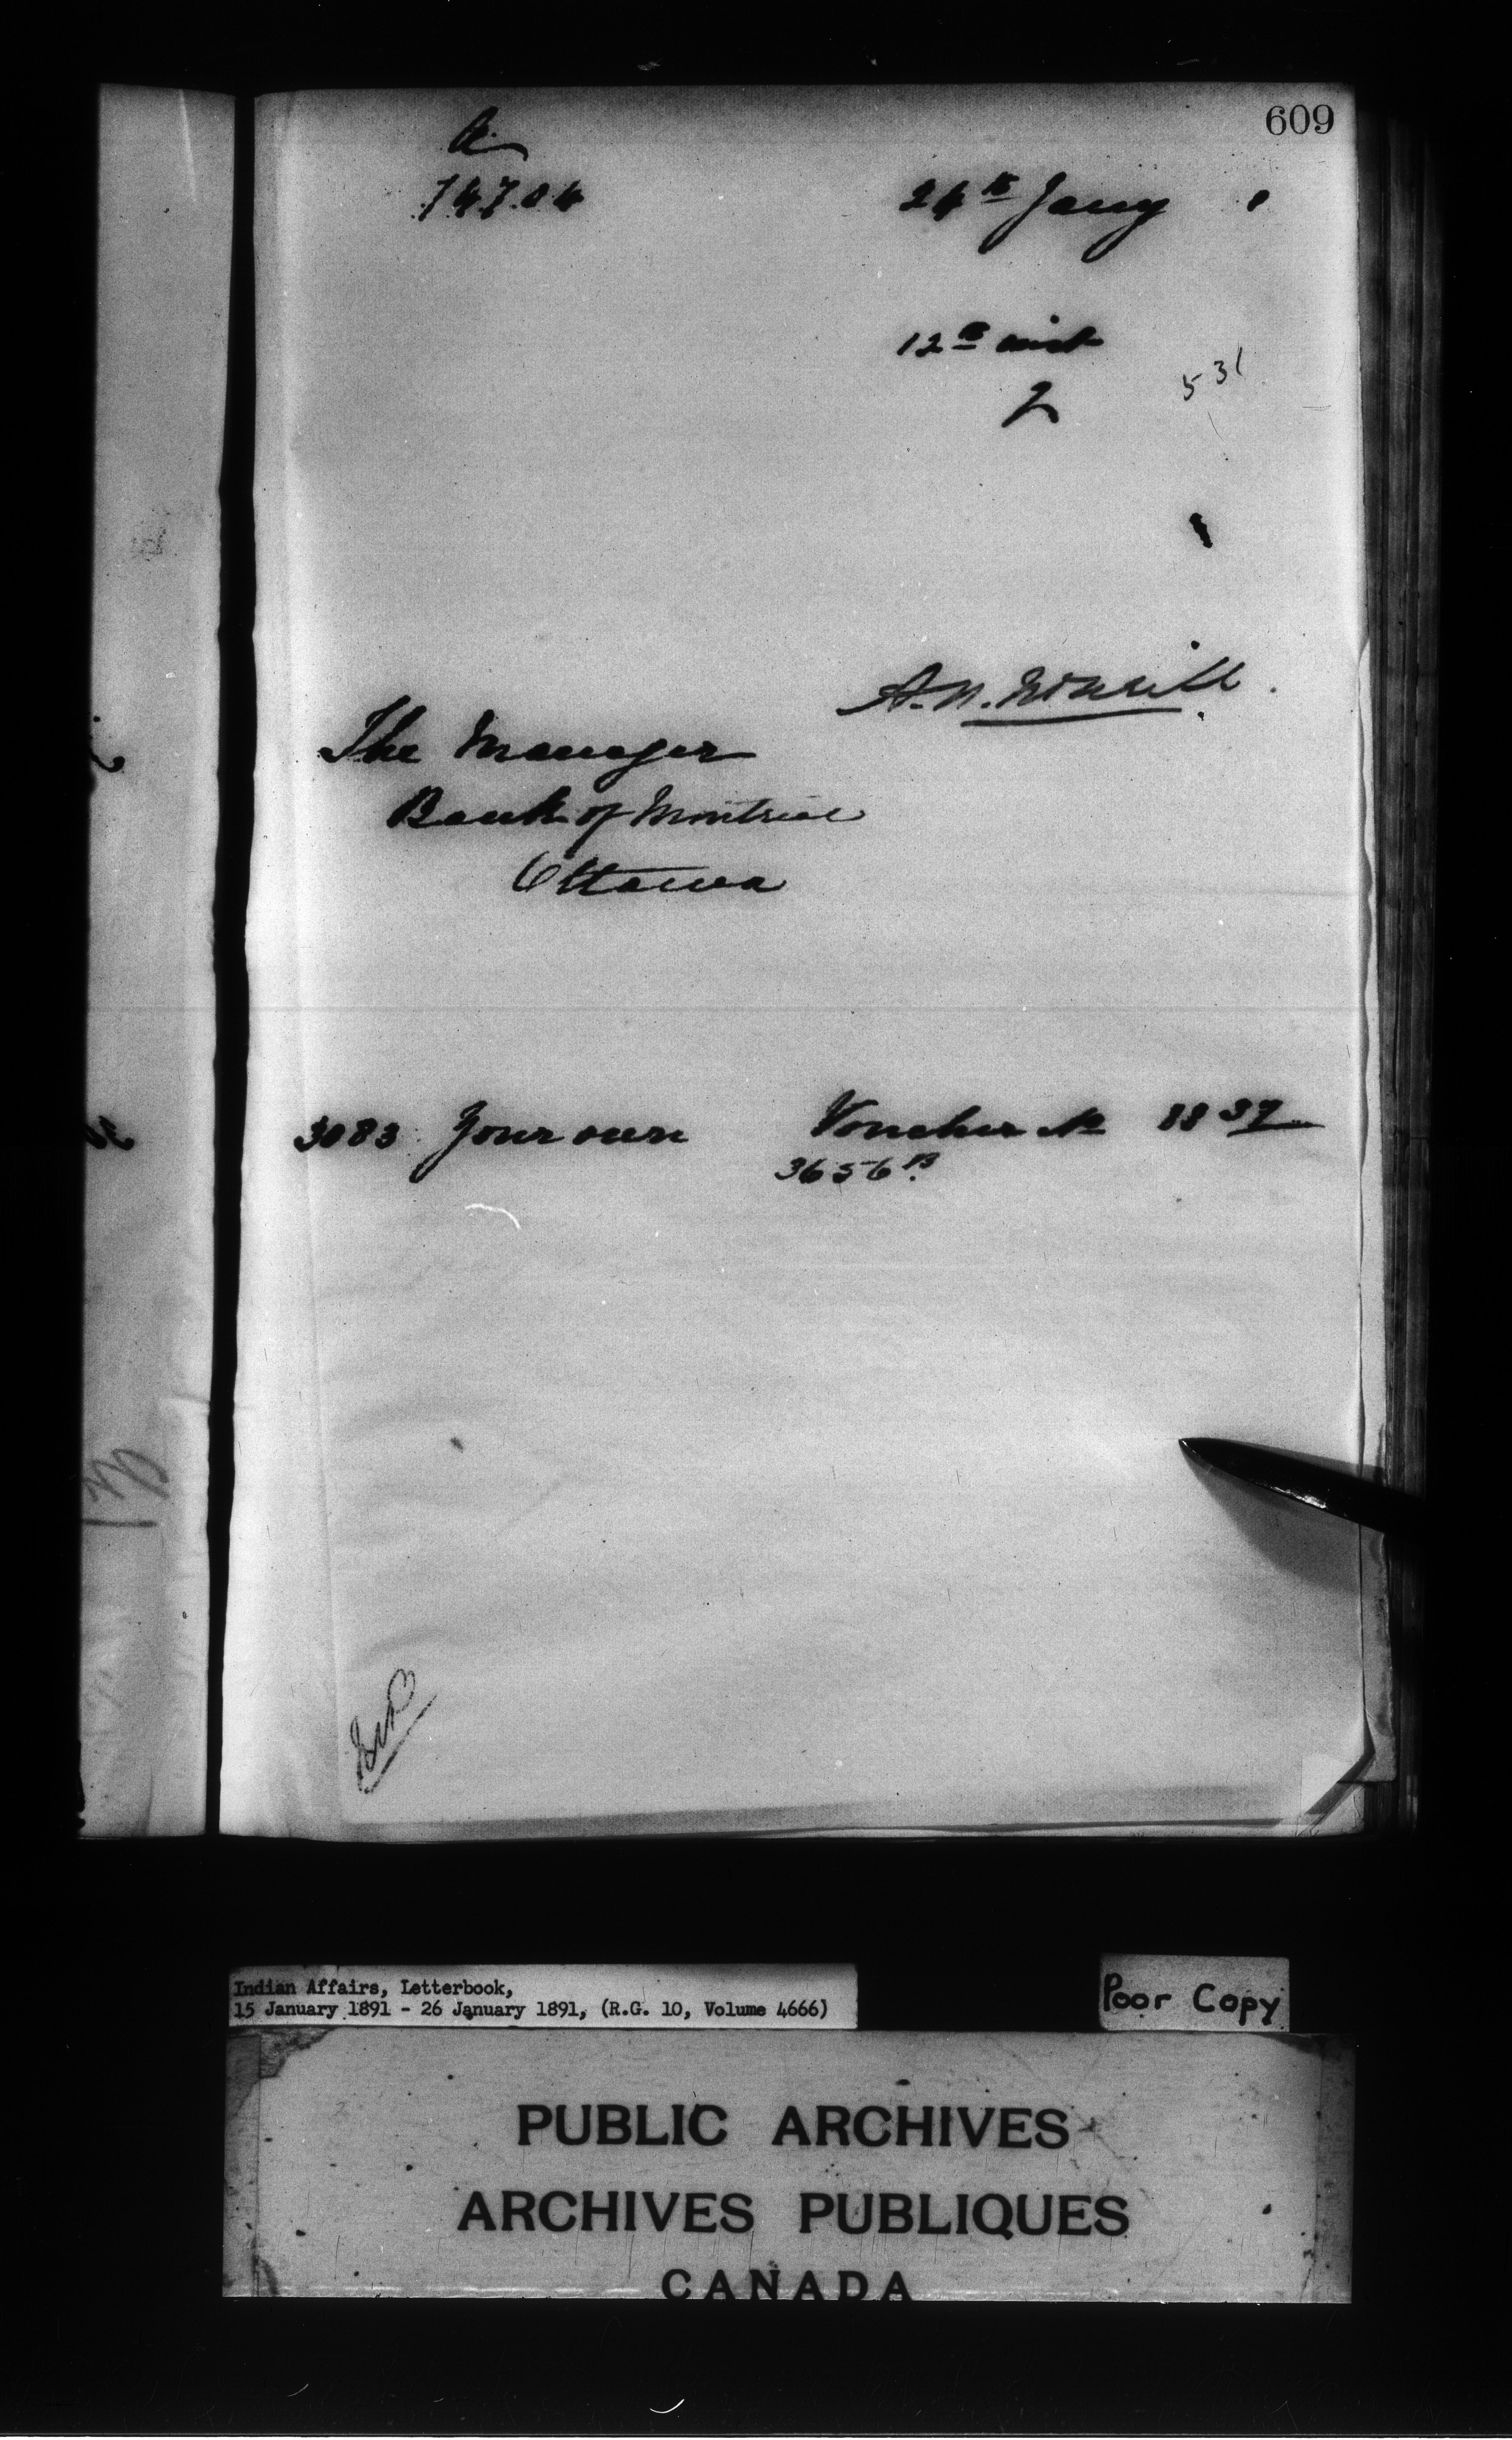 609
A
74704
24th Jany 1
12th inst
2
531
A. N. McNeill.
The Manager
Bank of Montreal
Ottawa
3083 Your own Voucher No 1837
3656 B.
Indian Affairs, Letterbook,
15 January 1891 - 26 January 1891, (R.G. 10, Volume 4666)
Poor Copy
PUBLIC ARCHIVES
ARCHIVES PUBLIQUES
CANADA